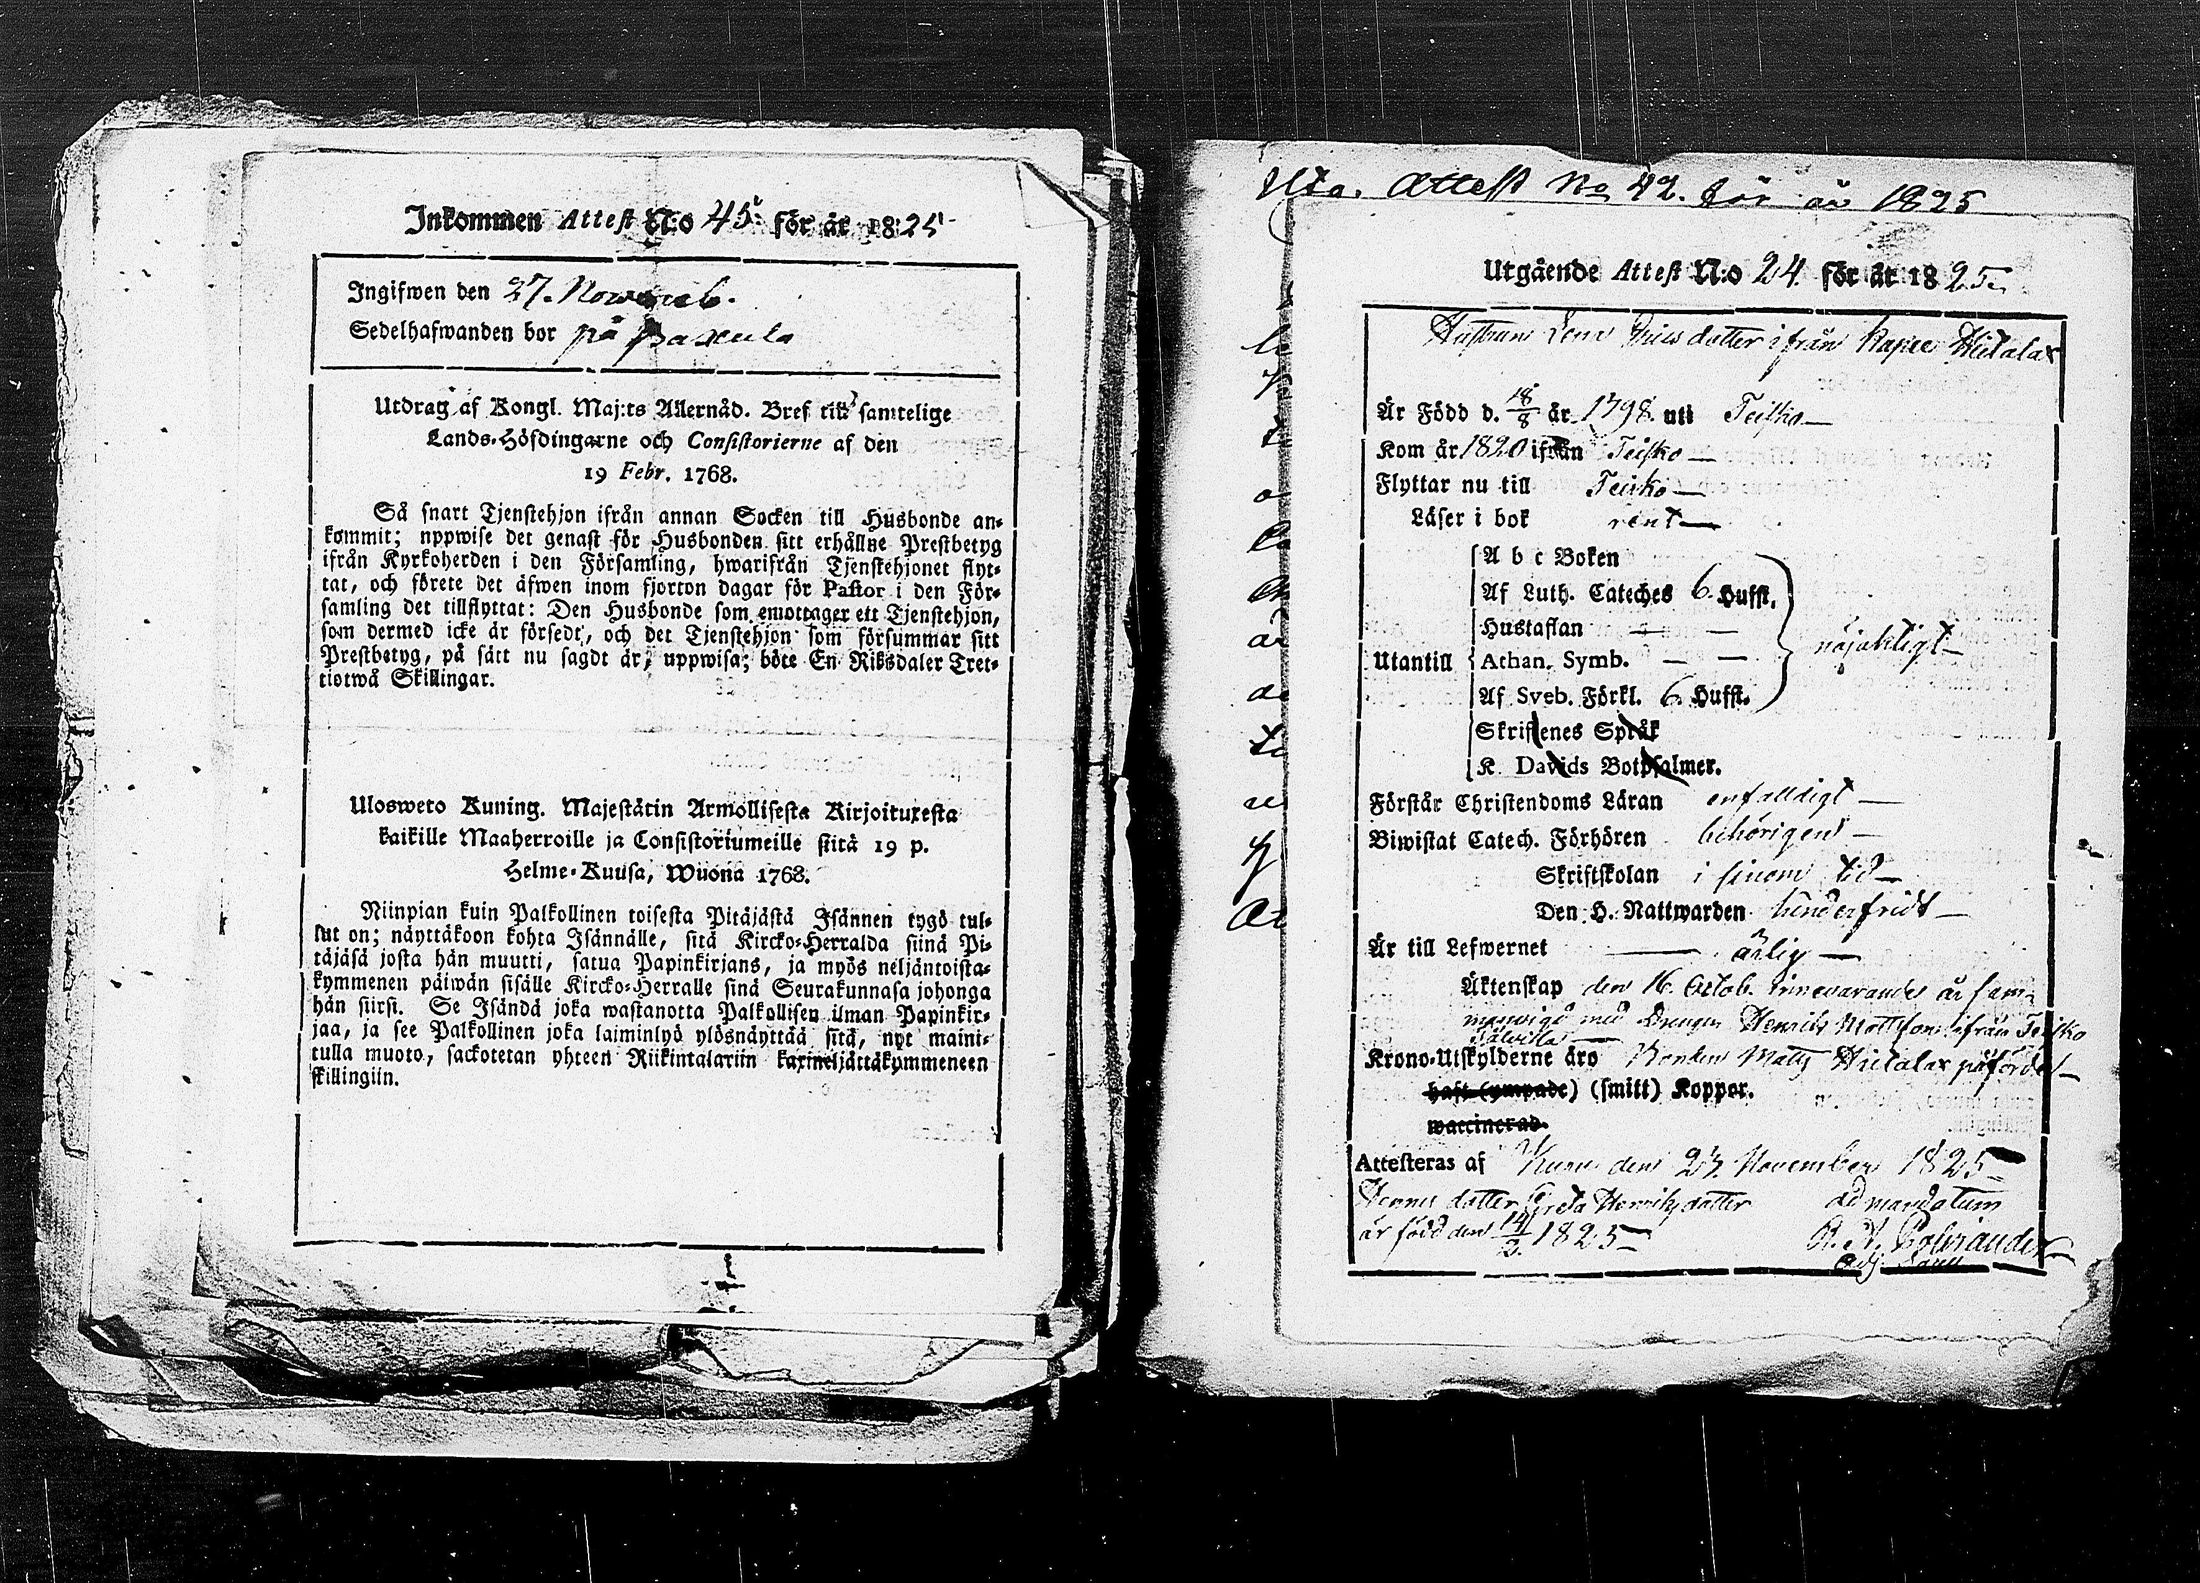 Inkommen Attest N:o 45 för år 1825
Ingifwen den 27. Novemb.
Sedelhafwanden bor på
Utdrag af Kongl. Maj:ts Allernåd. Bref till samtelige
Lands-Höfdingarne och Consistorierne af den
19 Febr. 1768.
Så snart Tjenstehjon ifrån annan Socken till Husbonde an-
kommit; uppwise det genast för Husbonden sitt erhållne Prestbetyg
ifrån Kyrkoherden i den Församling, hwarifrån Tjenstehjonet flyt-
tat, och förete det äfwen inom fjorton dagar för Pastor i den För-
samling det tillflyttat: Den Husbonde som emottager ett Tjenstehjon,
som dermed icke är försedt, och det Tjenstehjon som försummar sitt
Prestbetyg, på sätt nu sagdt är, uppwisa; böte En Riksdaler Tret-
tiotwå Skillingar.
Ulosweto Kuning. Majestätin Armollisesta Kirjoituxesta
kaikille Maaherroille ja Consistoriumeille siitä 19 p.
Helme-Kuusa, Wuona 1768.
Niinpian kuin Palkollinen toisesta Pitäjästä Isännen tygö tul-
lut on; näyttäkoon kohta Isännälle, sitä Kircko-Herralda siinä Pi-
täjäsä josta hän muutti, satua Papinkirjans, ja myös neljäntoista-
kymmenen päiwän sisälle Kircko-Herralle sinä Seurakunnasa johonga
hän siirsi. Se Isändä joka wastanotta Palkollisen ilman Papinkir-
jaa, ja see Palkollinen joka laiminlyö ylösnäyttää sitä, nyt maini-
tulla muoto, sackotetan yhteen Riikintalariin kaxineljättäkymmeneen
skillingiin.
Attest No 42. för år 1825
Utgående Attest N:o 24. för år 1825.
Hustrun Lena Ericsdotter ifrån Hietalax
Är Född d. 18/8 år 1798. uti Teisko
Kom år 1820 ifrån Teisko
Flyttar nu till Teisko
Läser i bok rent
A b c Boken
Af Luth. Cateches 6. Hufst.
Hustaflan
Utantill Athan. Symb. nöjaktigt
Af Sveb. Förkl. 6. Hufst.
Skriftenes Språk
K. Davids Botpsalmer.
Förstår Christendoms Läran enfalldigt
Biwistat Catech. Förhören behörigen
Skriftskolan i sinom tid
Den H. Nattwarden hinderfritt
Är till Lefwernet ärlig
Äktenskap den 16. Octob. innevarande år sam-
manvigd med Drengen Henrik Mattsson ifrån Teisko
Krono-Utskylderne äro Bonden Matts Hietalax påförde
haft (ympade) (smitt) Koppor.
waccinerad.
Attesteras af Kuru den 27 November 1825
Hennes dotter Greta Henriksdotter ad mandatum
är född den 14/2 1825